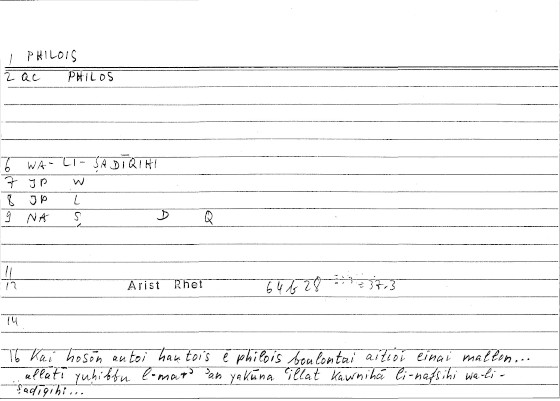 1 PHILOIS
2 QC PHILOS
6 WA- LI- ṢADĪQIHI
7 JP W
8 JP L
9 NA Ṣ D Q
11
12 Arist Rhet 64b28 = 37.3
14
16 Kai hosōn autoi hautois ē philois boulontai aitioi einai mallon...
allātī yuḥibbu l-marʾ ʾan yakūna ʿillat kawnihā li-nafsihi wa-li-
ṣadīqihi...